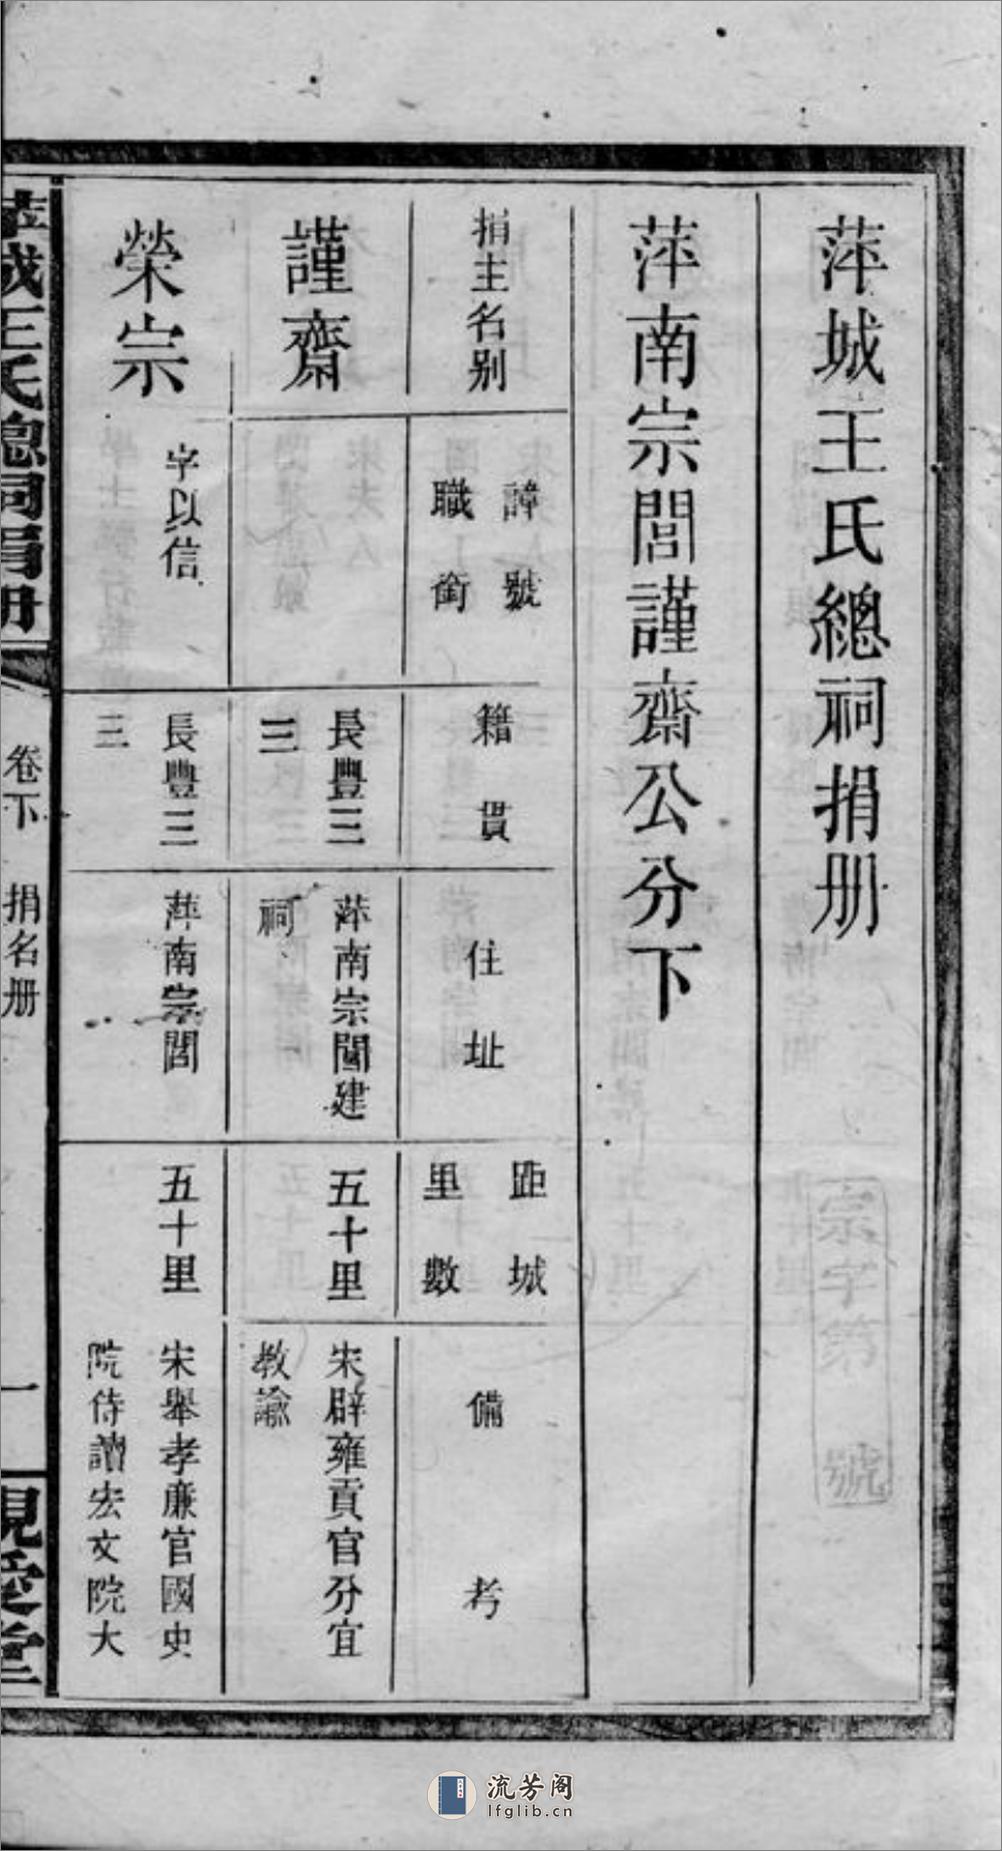 萍城王氏總祠捐册
宗字第 號
萍南宗閭謹齋公分下
捐主名别
諱號
職銜
籍貫
住址
距城
里數
備考
謹齋
長豐三
三
萍南宗閭建
祠
五十里
宋辟雍貢官分宜
教諭
榮宗
字以信
長豐三
三
萍南宗閭
五十里
宋舉孝廉官國史
院侍讀宏文院大
萍城王氏總祠捐册
卷下
捐名册
一
親愛堂
流芳阁
lfglib.cn